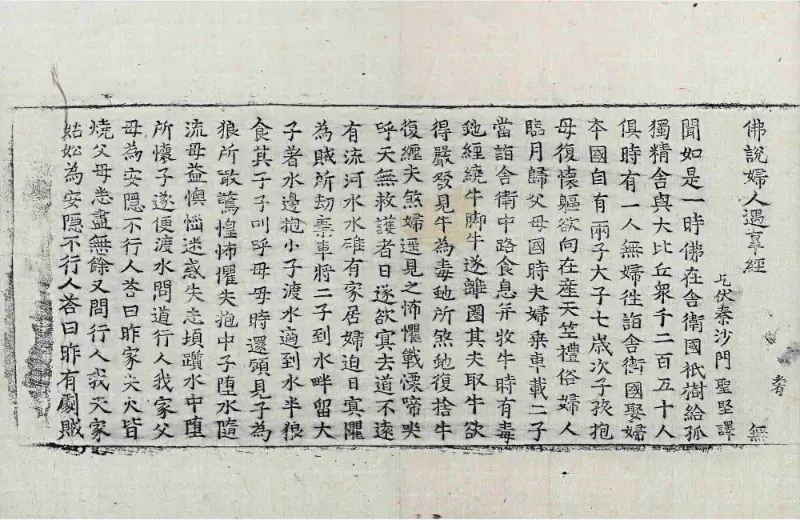 佛說婦人遇辜經 無
肴
乞伏秦沙門聖堅譯
聞如是一時佛在舍衛國祇樹給孤
獨精舍與大比丘衆千二百五十人
俱時有一人無婦徃詣舍衛國娶婦
夲國自有兩子大子七歲次子孩抱
母復懷軀欲向在產天竺禮俗婦人
臨月歸父母國時夫婦乘車載二子
當詣舍衛中路食息幷牧牛時有毒
虵纏繞牛脚牛遂離圂其夫取牛欲
得嚴發見牛為毒虵所煞虵復捨牛
復纏夫煞婦遥見之怖懼戰慄啼哭
呼天無救護者日遂欲冥去道不遠
有流河水水碓有家居婦迫日冥懼
為賊所劫棄車將二子到水畔留大
子著水邊抱小子渡水適到水半狼
食其子子叫呼母母時還顧見子為
狼所噉驚惶怖懼失抱中子墮水隨
流母益懊惱迷惑失志頓躓水中墮
所懷子遂便渡水問道行人我家父
母為安隱不行人荅曰昨家失火皆
燒父母悉盡無餘又問行人我夫家
姑妐為安隱不行人荅曰昨有劇賊